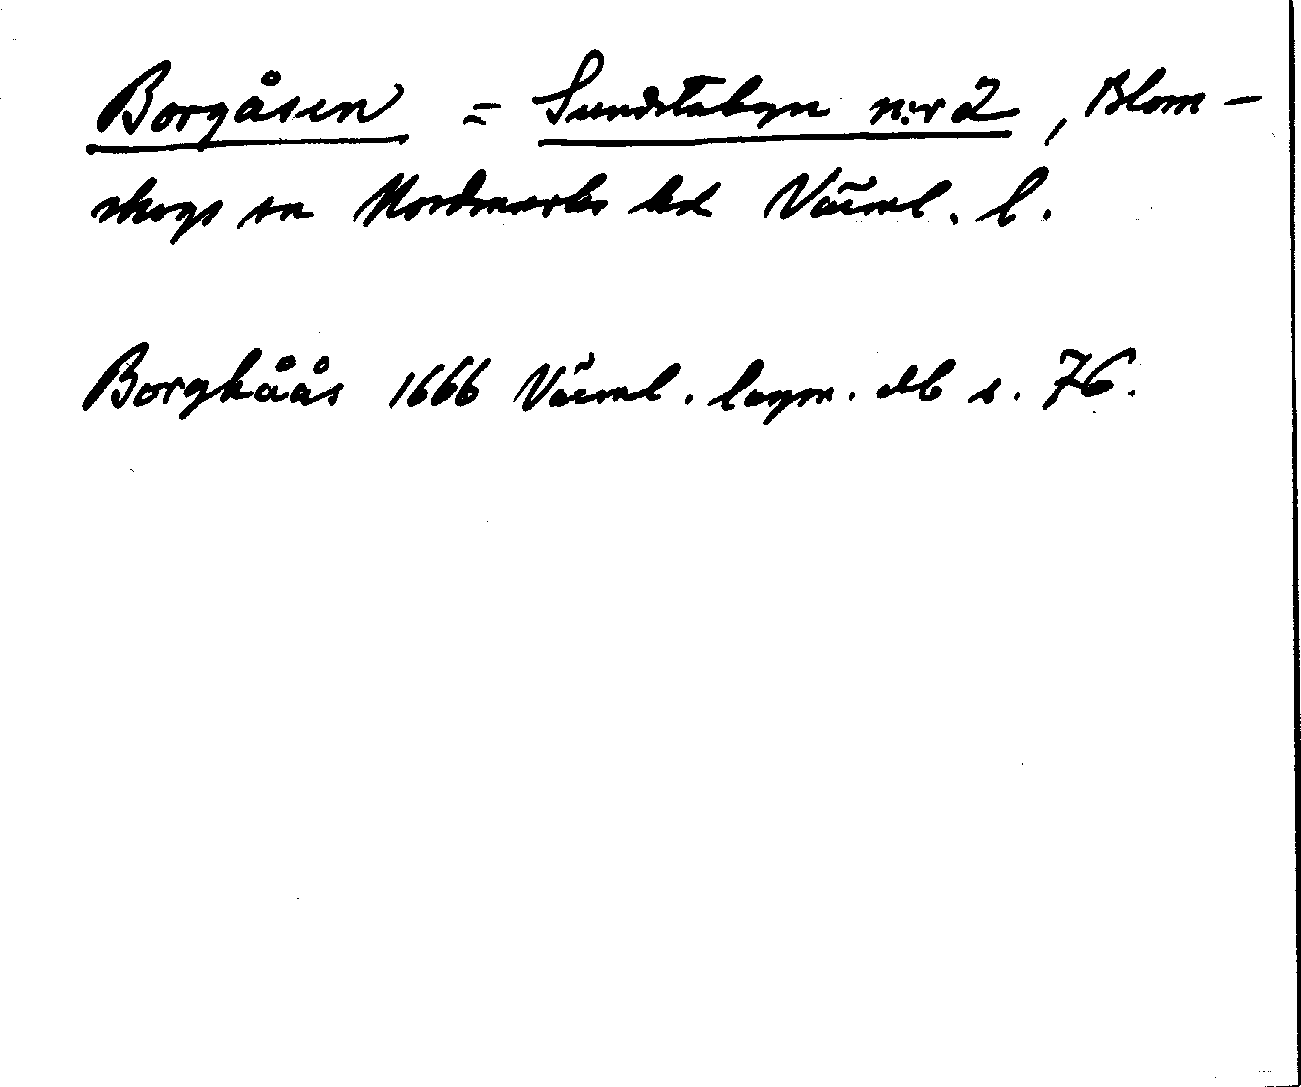 Borgåsen = Sundstabyn n:r 2, Blom-
skogs sn Nordmarks hd Värml. l.
Borgkåås 1666 Värml. lagm. db s. 76.